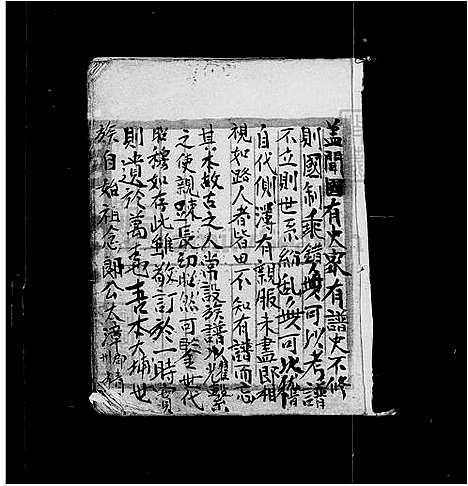 盖聞國有史家有譜史不修
則國制乘錯無可以考譜
不立則世系紛乱無可次稽
自代側薄有親服未盡即相
視如路人者皆由不知有譜而忘
其本故古之人常設族譜以光繫
之使親踈長幼昭然可鉴世代
昭穆如存此雖敬訂於一時實
則遺於萬壱吾本大埔世
族自始祖念郎公大漳州